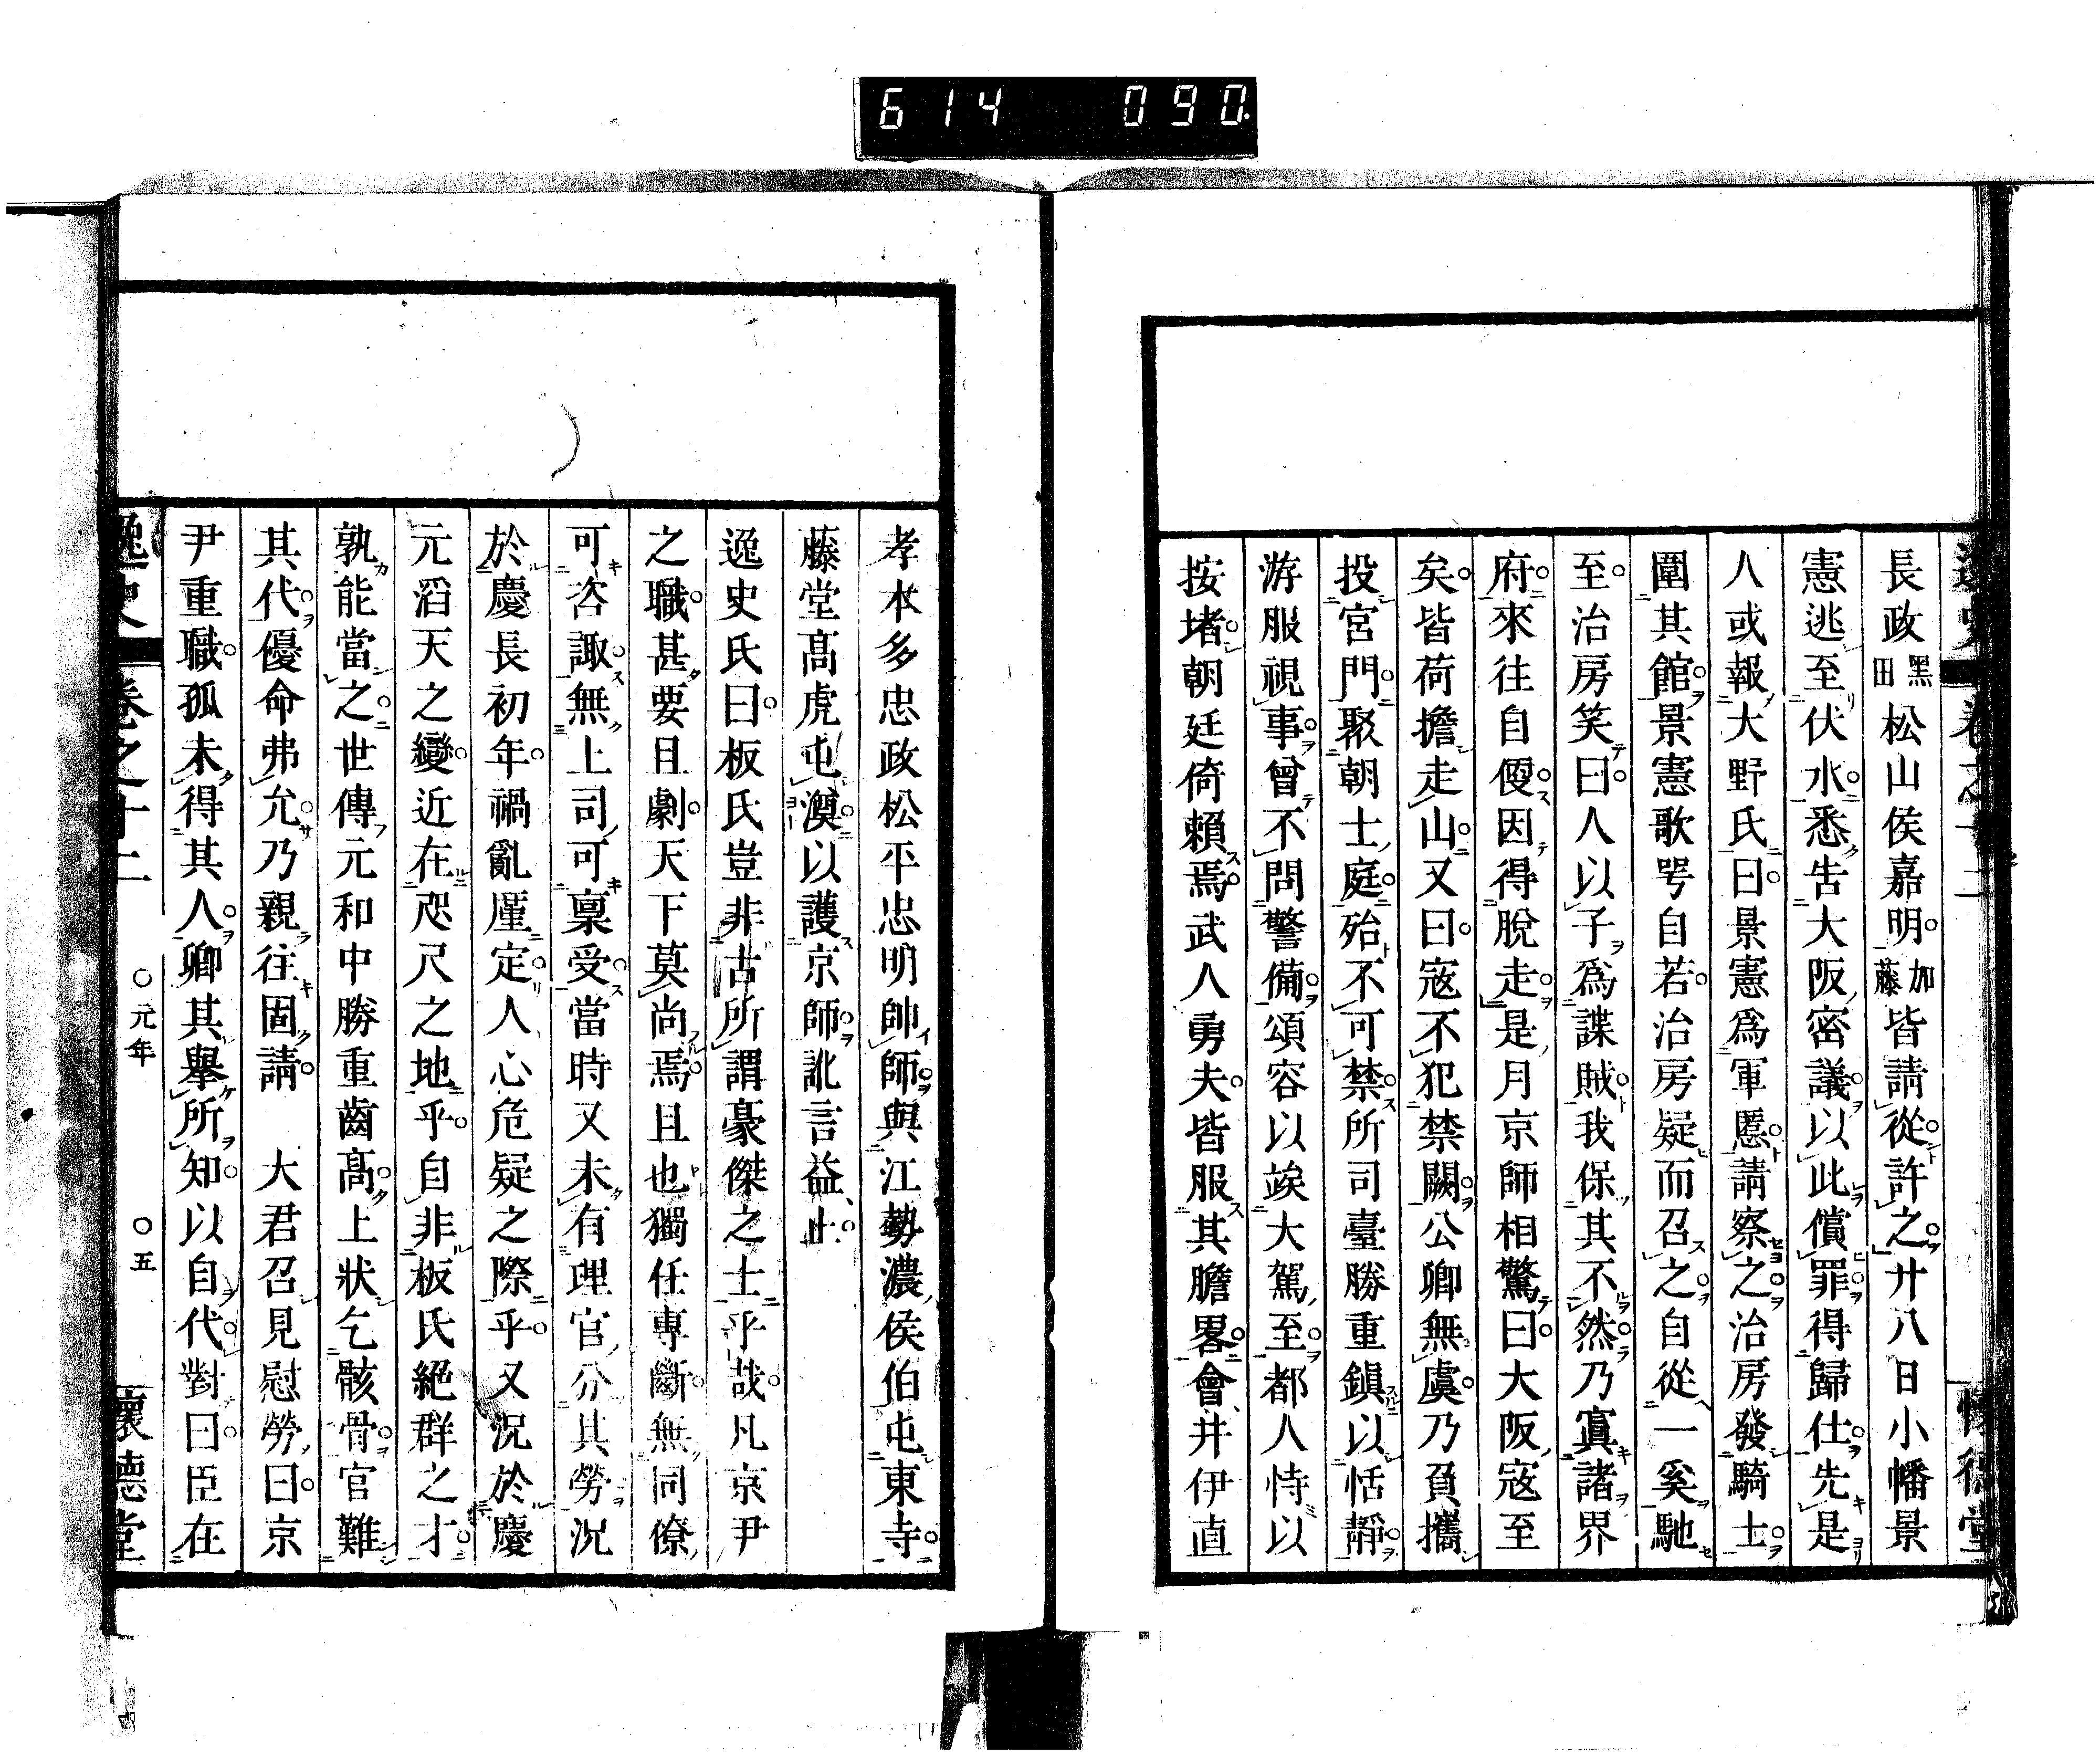 614 090
長政黑田松山侯嘉明加藤皆請從許之廿八日小幡景
憲逃至伏水悉吿大阪密議以此償罪得歸仕先是
人或報大野氏曰景憲爲軍慝請察之治房發騎士
圍其館景憲歌咢自若治房疑而召之自從一奚馳
至治房笑曰人以子爲諜賊我保其不然乃寘諸界
府來往自偠因得脫走是月京師相驚曰大阪寇至
矣皆荷擔走山又曰寇不犯禁闕公卿無虞乃負攜
投宮門聚朝士庭殆不可禁所司臺勝重鎭以恬靜
游服視事曾不問警備頌容以竢大駕至都人恃以
按堵朝廷倚賴焉武人勇夫皆服其膽畧會井伊直
孝本多忠政松平忠明帥師與江勢濃侯伯屯東寺
藤堂高虎屯淀以護京師訛言益止
逸史氏曰板氏豈非古所謂豪傑之士乎哉凡京尹
之職甚要且劇天下莫尚焉且也獨任專斷無同僚
可咨諏無上司可稟受當時又未有理官分其勞況
於慶長初年禍亂厪定人心危疑之際乎又況於慶
元滔天之變近在咫尺之地乎自非板氏絕群之才
孰能當之世傳元和中勝重齒高上狀乞骸骨官難
其代優命弗允乃親往固請 大君召見慰勞曰京
尹重職孤未得其人卿其擧所知以自代對曰臣在
逸史 卷之十二 ○元年 ○五 懷德堂